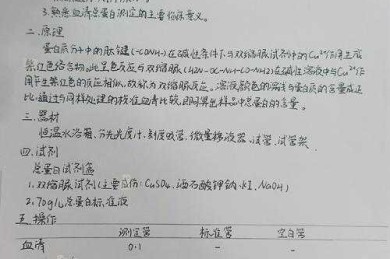 3.熟悉血清总蛋白测定的主要临床意义。
二.原理
蛋白质分子中的肽键(-CONH-)在碱性条件下与双缩脲试剂中的Cu²⁺作用生成
紫红色络合物,此呈色反应与双缩脲(H2N-OC-NH-CO-NH2)在碱性溶液中与Cu²⁺
作用生紫红色的反应相似,故称为双缩脲反应。溶液颜色的深浅与蛋白质的含量成正
比,通过与同样处理的标准血清比较,即可算出样品中总蛋白的含量。
三.器材
恒温水浴箱、分光光度计、刻度吸管、微量移液器、试管、试管架
四.试剂
总蛋白试剂盒
1.双缩脲试剂(主要成份:CuSO4、酒石酸钾钠、KI、NaOH)
2.70g/L总蛋白标准液
五.操作
测定管 标准管 空白管
血清 0.1 — —